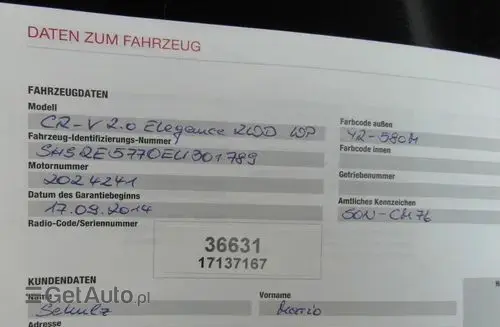 DATEN ZUM FAHRZEUG
FAHRZEUGDATEN
Modell
CR-V 2.0 Elegance 2WD WP
Fahrzeug-Identifizierungs-Nummer
SHSRE5770EU301789
Motornummer
2024241
Datum des Garantiebeginns
17.09.2014
Radio-Code/Seriennummer
36631
17137167
Farbcode außen
42-580M
Farbcode innen
Getriebenummer
Amtliches Kennzeichen
GON-CM76
KUNDENDATEN
Name
Schulz
Vorname
Mario
Adresse
GetAuto.pl